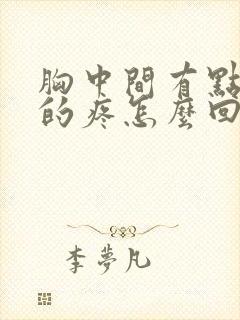 胸中間有點
的疼怎麼回
李夢凡